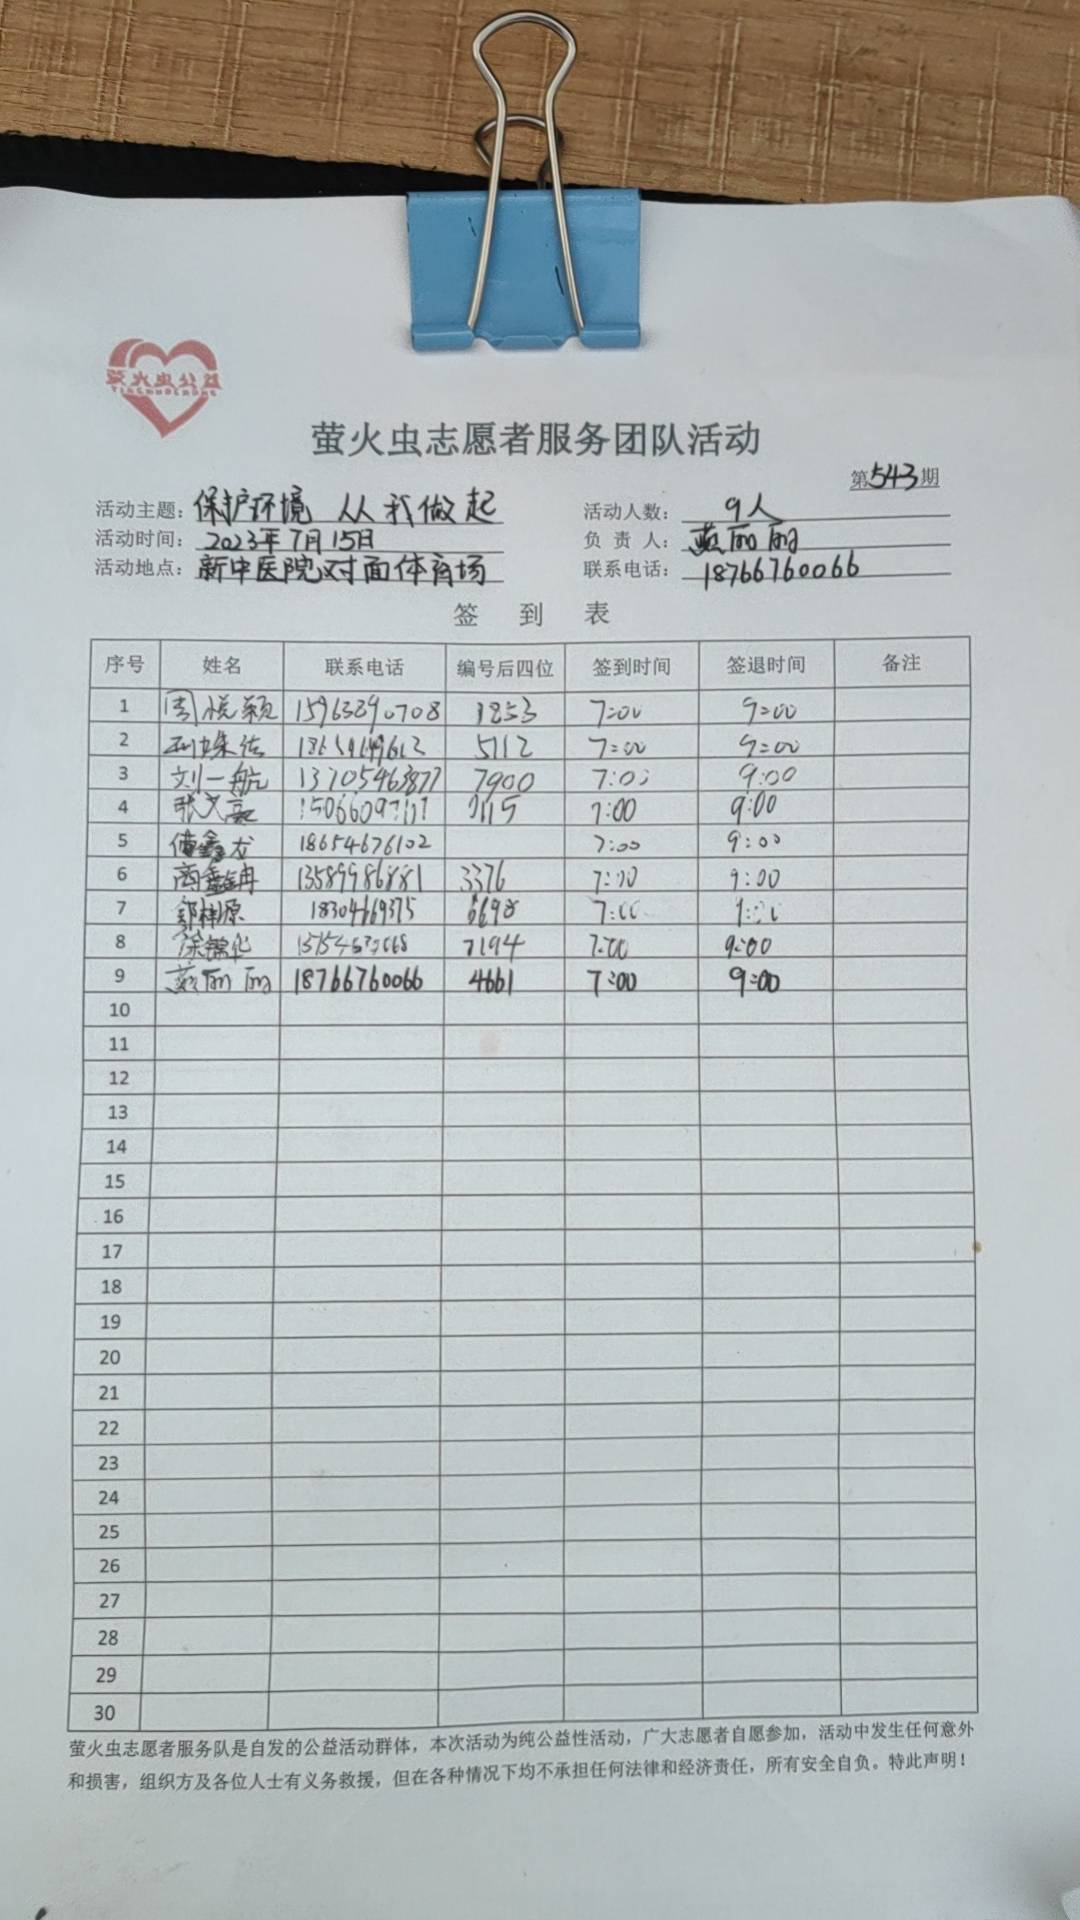 萤火虫公益
萤火虫志愿者服务团队活动
第543期
活动主题：保护环境 从我做起 活动人数：9人
活动时间：2023年7月15日 负责人：燕丽丽
活动地点：新中医院对面体育场 联系电话：18766760066
签到表
序号 姓名 联系电话 编号后四位 签到时间 签退时间 备注
1 周悦颖 15963890708 1853 7:00 9:00
2 5112 7:00 9:00
3 刘一航 13705463877 7900 7:00 9:00
4 7:00 9:00
5 18654676102 7:00 9:00
6 13589986881 3376 7:00 9:00
7 18304669375 7:00
8 7194 7:00 9:00
9 燕丽丽 18766760066 4661 7:00 9:00
10
11
12
13
14
15
16
17
18
19
20
21
22
23
24
25
26
27
28
29
30
萤火虫志愿者服务队是自发的公益活动群体，本次活动为纯公益性活动，广大志愿者自愿参加，活动中发生任何意外
和损害，组织方及各位人士有义务救援，但在各种情况下均不承担任何法律和经济责任，所有安全自负。特此声明！